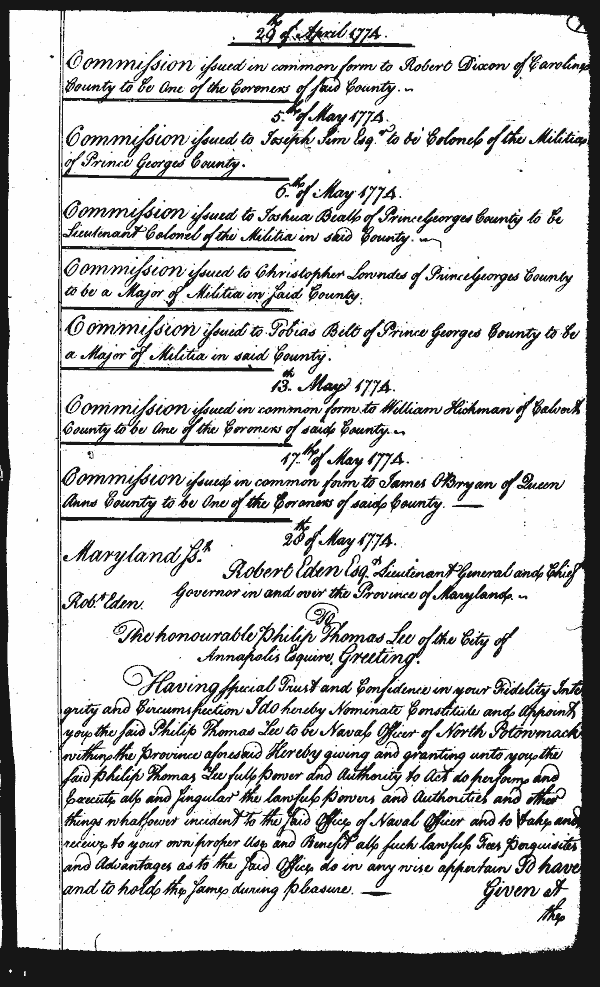 29th of April 1774.
Commission issued in common form to Robert Dixon of Caroline
County to be One of the Coroners of said County.
5.th of May 1774.
Commission issued to Joseph Sim Esq.r to be Colonel of the Militia
of Prince Georges County.
6.th of May 1774.
Commission issued to Joshua Beall of Prince Georges County to be
Lieutenant Colonel of the Militia in said County.
Commission issued to Christopher Lowndes of Prince Georges County
to be a Major of Militia in said County.
Commission issued to Tobias Belt of Prince Georges County to be
a Major of Militia in said County.
13.th May 1774.
Commission issued in common form to William Hickman of Calvert
County to be One of the Coroners of said County.
17.th of May 1774.
Commission issued in common form to James OBryan of Queen
Anns County to be One of the Coroners of said County.
28th of May 1774.
Maryland Ss.t
Robert Eden Esq.r Lieutenant General and Chief
Rob.t Eden. Governor in and over the Province of Maryland.
To
The honourable Philip Thomas Lee of the City of
Annapolis Esquire, Greeting.
Having special Trust and Confidence in your Fidelity Inte
grity and Circumspection I do hereby Nominate Constitute and Appoint
you the said Philip Thomas Lee to be Naval Officer of North Potowmack
within the Province aforesaid Hereby giving and granting unto you the
said Philip Thomas Lee full Power and Authority to Act do perform and
Execute all and singular the lawful Powers and Authorities and other
things whatsoever incident to the said Office of Naval Officer and to take and
receive to your own proper Use and Benefit all such lawful Fees Perquisites
and Advantages as to the said Office do in any wise appertain To have
and to hold the same during pleasure. Given at
the